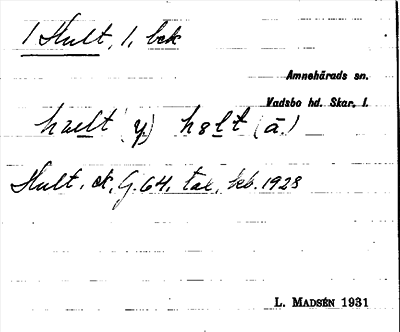 1 Hult, 1. bck
Amnehärads sn.
Vadsbo hd. Skar. l.
hult (y.) hult (ä.)
Hult, ek. G. 64, tal, kb. 1928
L. MADSÉN 1931